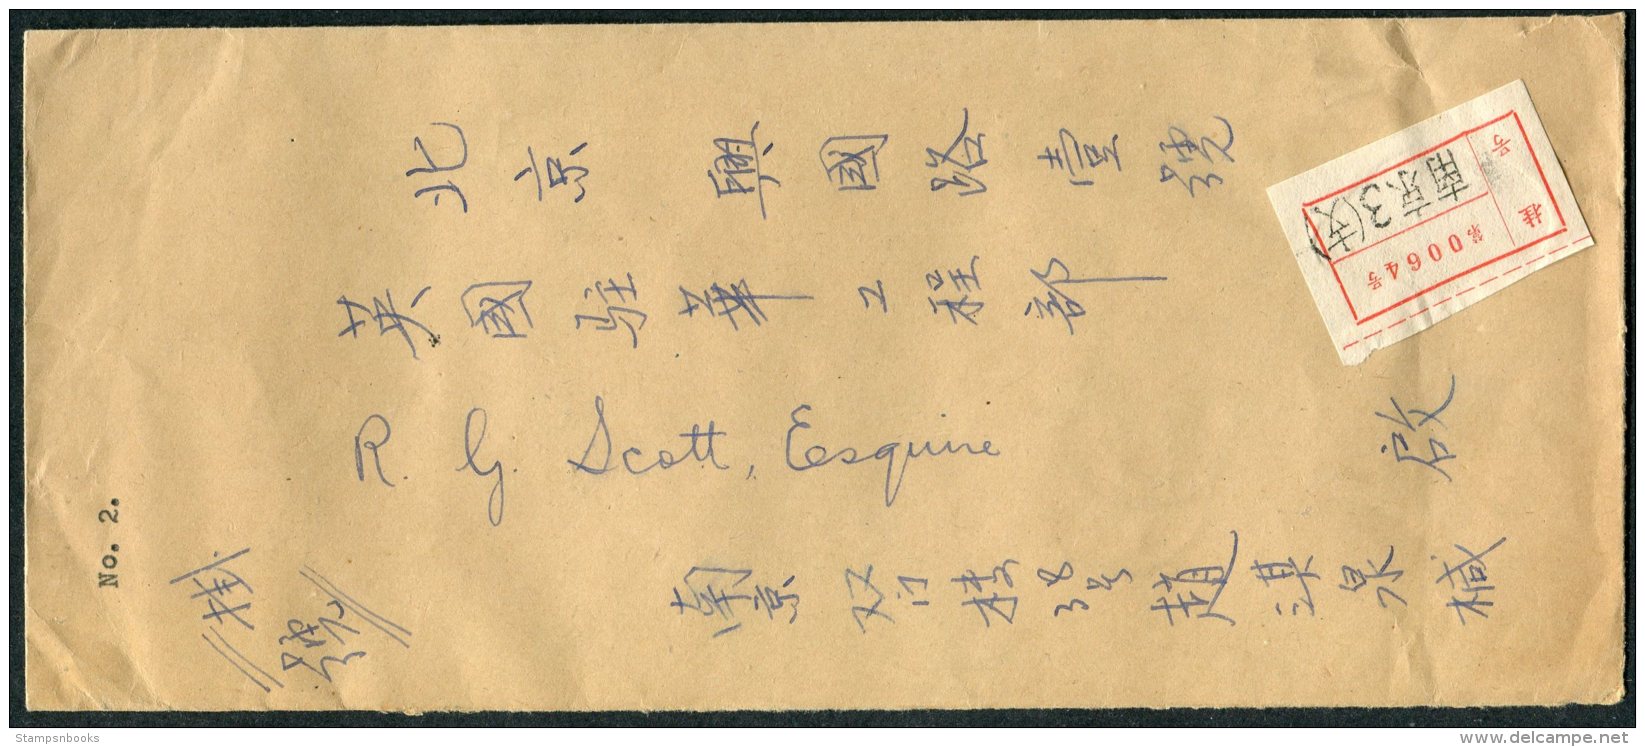 北京 興國路壹號
英國駐華工程部
R. G. Scott, Esquire
啟
南京双门楼38号趙淇泉緘
掛號
No. 2.
挂号
南京3(支)
第00644号
Stampsnbooks
delcampe.net